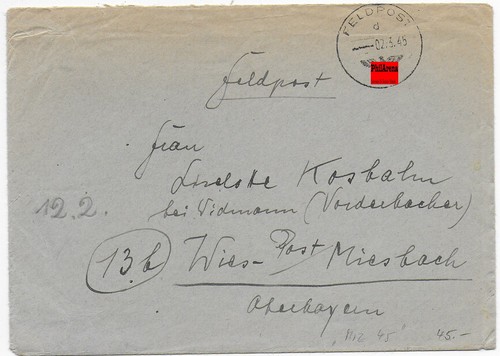 FELDPOST
d
02.3.45
Philarena
Feldpost
Frau
Liselotte Kosbahm
bei Widmann (Vorderbacher)
12.2.
13b Wies- Post Miesbach
Oberbayern
45.-